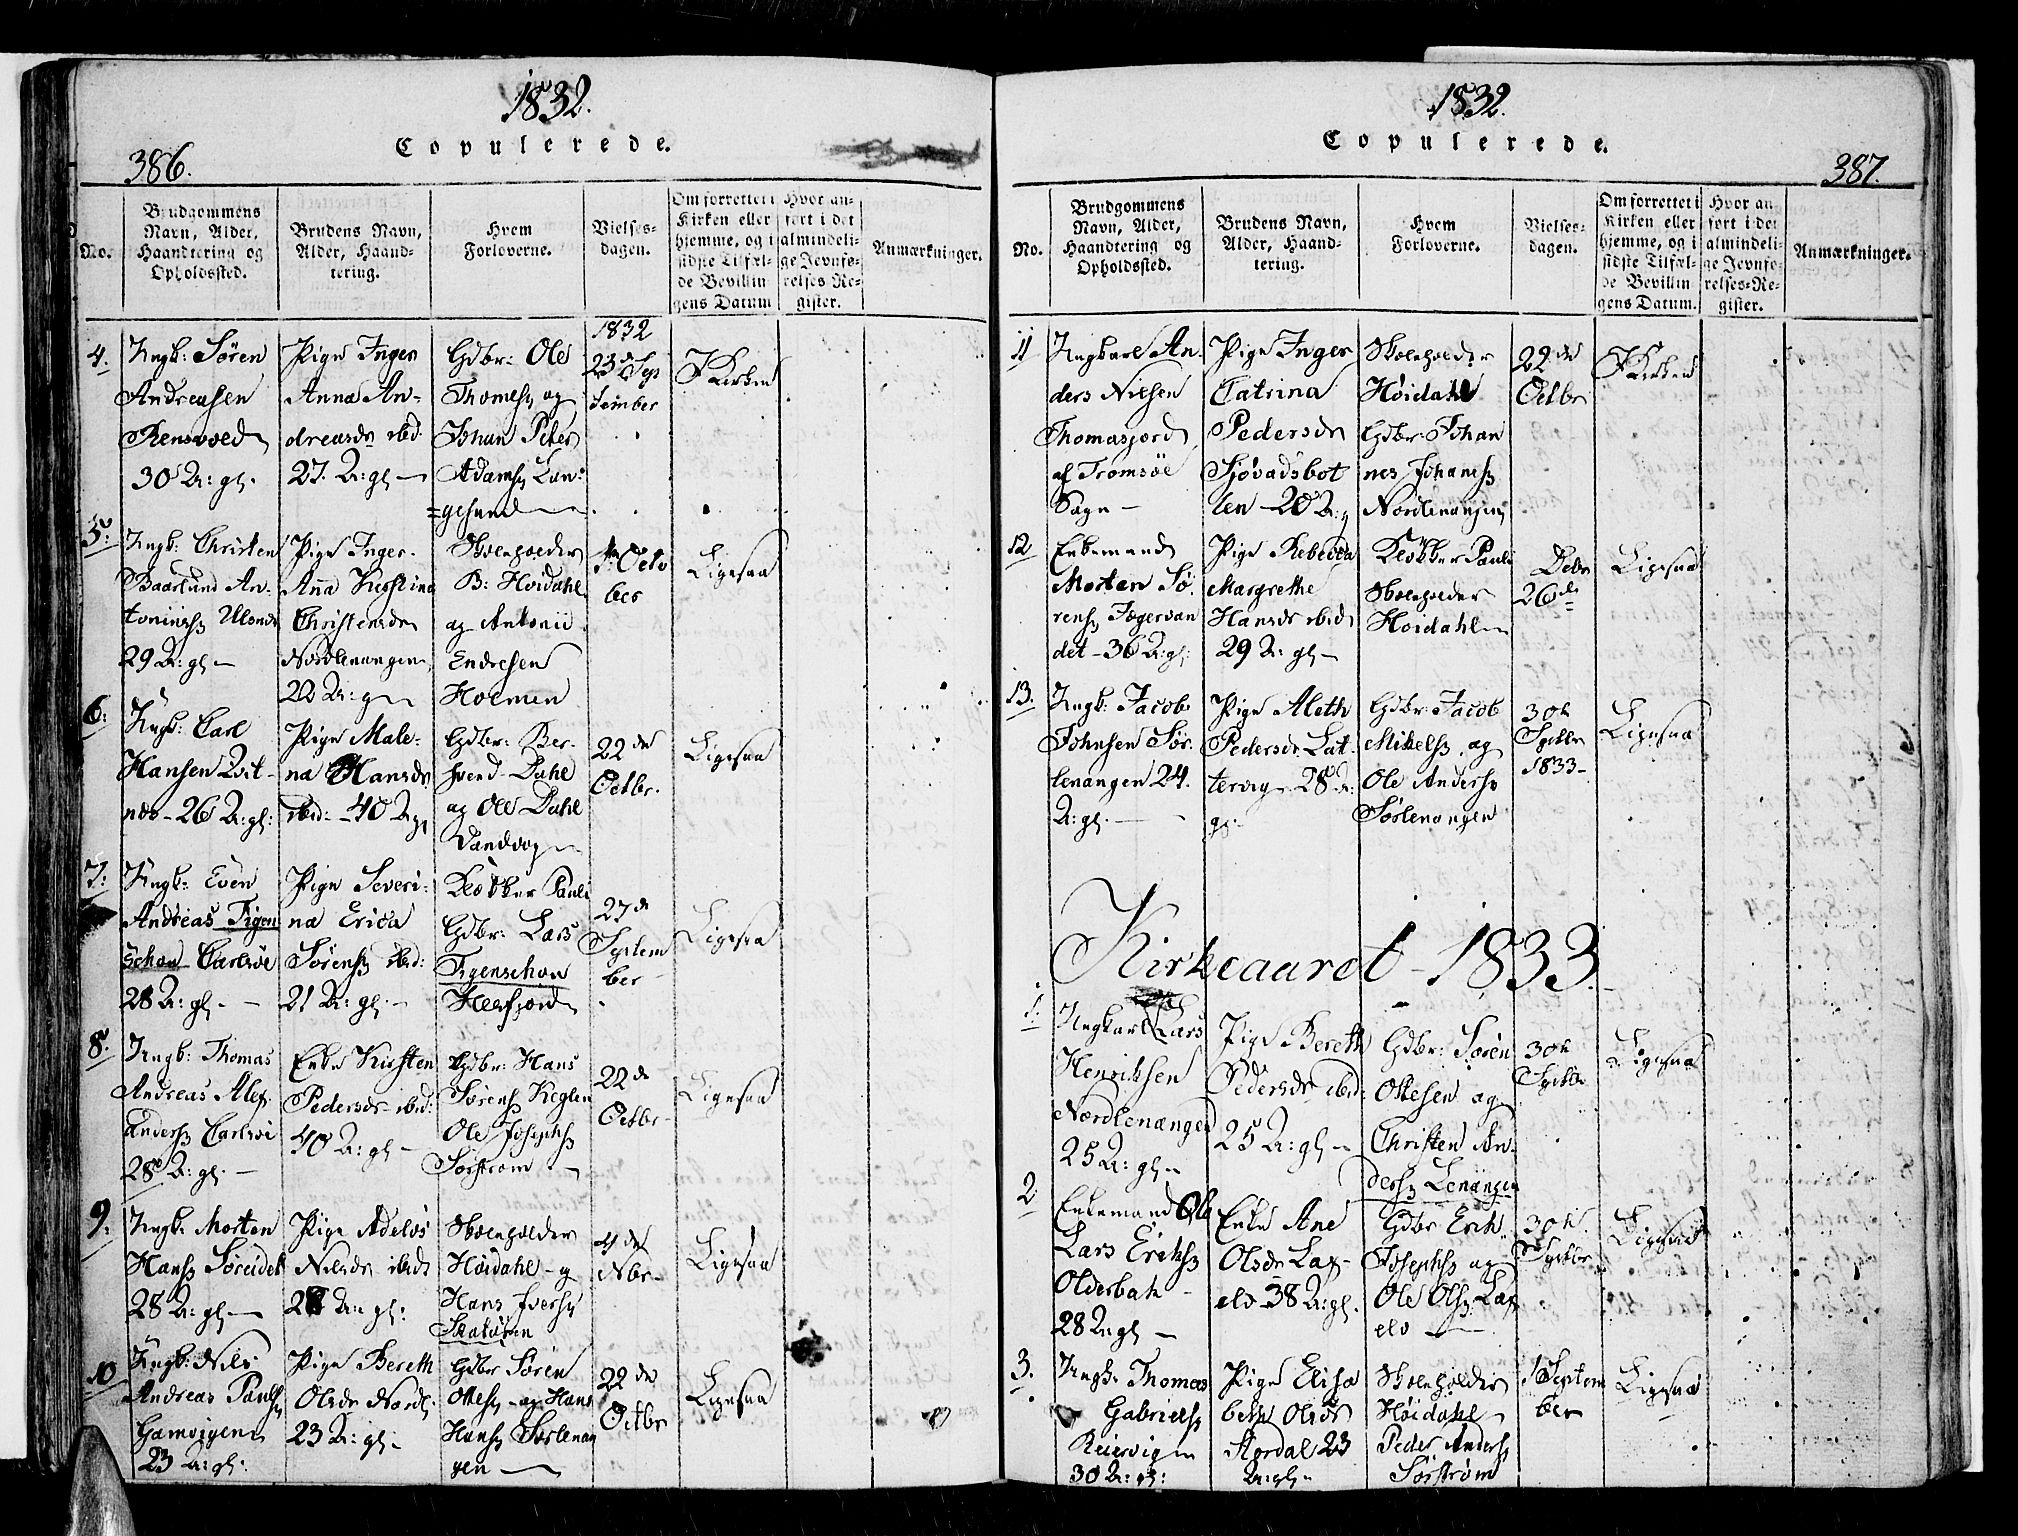 1832.
Copulerede.
386.
No.
Brudgommens
Navn, Alder,
Haandtering og
Opholdssted.
Brudens Navn,
Alder, Haand-
tering.
Hvem
Forloverne.
Vielses-
dagen.
Om forrettet i
Kirken eller
hjemme, og i
sidste Tilfæl-
de Bevillin
gens Datum
Hvor an-
ført i det
almindeli-
ge Jevnfø-
relses-Re-
gister.
Anmærkninger.
4.
Ungk: Søren
Andreasen
Rensvold
30 A: gl.
Pige Inger
Anna An-
dreasdr ibid
27 A: gl
Gdbr: Ole
Thomes og
Johan Peter
Adams Lan-
gesund
1832
23de Sep
tember
I Kirken
5.
Ungk: Christen
Baarlund An-
toniis
29 A: gl
Pige Inger
Anna Kirstina
Christensdr
Nordlenangen
22 A: g
Skoleholder
B: Høidahl
og Antonii
Endresen
Holmen
1te Octo
ber
Ligesaa
6:
Ungk: Carl
Hansen Qvit-
næs - 26 A: gl:
Pige Male-
na Hansdr
ibid: - 40 A gl
Gdbr: Ber-
hvend Dahl
og Ole Dahl
Dandvog
22de
Octbr.
Ligesaa
7:
Ungk: Even
Andreas Figen
schou Carlsøe
28 A: gl.
Pige Severi-
na Erica
Sørens ibid:
21 A: gl:
Klokker Pauli
Gdbr: Lars
Figenschou
Hessfjord
27de
Septem
ber
Ligesaa
8.
Ungk: Thomas
Andreas Alex-
anders Carlsøi
28 A: gl.
Enke Kirsten
Pedersdr ibid:
40 A: gl
Gdbr: Hans
Sørens
Ole Josephs
Sørstrøm
22de
Octbr
Ligesaa
9:
Ungk: Morten
Hans Søreidet
28 A: gl
Pige Adelus
Nilsdr ibid:
A: gl:
Skoleholder
Høidahl - g
Hans Ivers
4de
Nbr
Ligesaa
10
Ungk: Nils
Andreas Pauls
Gamvigen
23 A: gl:
Pige Bereth
Olsdr Nordl.
23 A: gl.
Gdbr Søren
Ottes og Hans
Hans Sørlenan
gen
22de
Octbr
Ligesaa
1832.
Copulerede.
387.
No.
Brudgommens
Navn, Alder,
Haandtering og
Opholdssted.
Brudens Navn,
Alder, Haand-
tering.
Hvem
Forloverne.
Vielses-
dagen.
Om forrettet i
Kirken eller
hjemme, og i
sidste Tilfæl-
de Bevillin
gens Datum.
Hvor an-
ført i det
almindeli-
ge Jevnfø-
relses-Re-
gister.
Anmærkninger.
11
Ungkarl An-
ders Nilsen
Thomasjord
af Tromsøe
Sogn
Pige Inger
Catrina
Pedersdr
Sjøvadsbot
ten - 20 A: g
Skoleholder
Høidahl
Gdbr: Johan
nes Johans
Nordlenangen
22de
Octbr
I Kirken
12
Enkemand
Morten Sø-
rens Jægervan
det - 36 A: gl:
Pige Rebecca
Margrethe
Hansdr ibid
29 A: gl
Klokker Pauli
Skoleholder
Høidahl
Octbr
26de
Ligesaa
13.
Ungk: Jacob
Johnsen Sør-
lenangen 24.
A: gl.
Pige Aleth
Pedersdr Lat-
tervig - 28 A:
gl.
Gdbr: Jacob
Mikels og
Ole Anders
Sørlenangen
30te
Septbr
1833
Ligesaa
Kirkeaaret - 1833.
1.
Ungkarl Lars
Henriksen
Nordlenangen
25 A: gl.
Pige Bereth
Pedersdr ibid:
25 A: gl
Gdbr: Søren
Ottesen og
Christen An-
ders Lenangen
30te
Septbr
Ligesaa
2
Enkemand Ole
Lars Eriks
Olderbak
28 A: gl
Enke Ane
Olsdr Lax-
elv 38 A: gl.
Gdbr Erik
Josephs og
Ole Ols: Lax
elv
30te
Septbr
Ligesaa
3.
Ungk: Thomas
Gabriels
Reiervig
30 A: gl:
Pige Elisa
beth Olsdr
Stordal 23
A: gl.
Skoleholder
Høidahl
Peder Anders
Sørstrøm
1 Septem
ber
Ligesaa